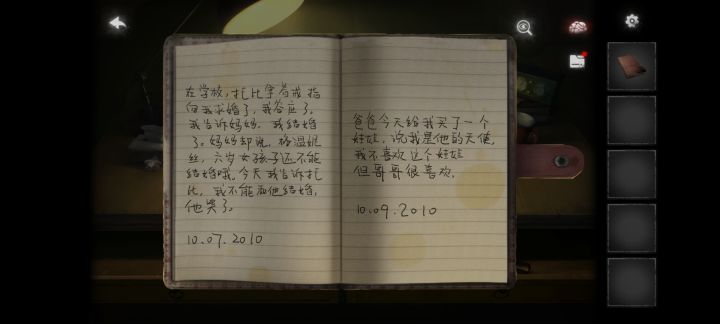 在学校，扎比拿着戒指
向我求婚了，我答应了。
我告诉妈妈，我结婚
了。妈妈却说，
丝，六岁女孩子还不能
结婚哦。今天我告诉扎
比，我不能和他结婚，
他哭了。
10.07.2010
爸爸今天给我买了一个
娃娃，说我是他的天使，
我不喜欢这个娃娃
但哥哥很喜欢。
10.09.2010